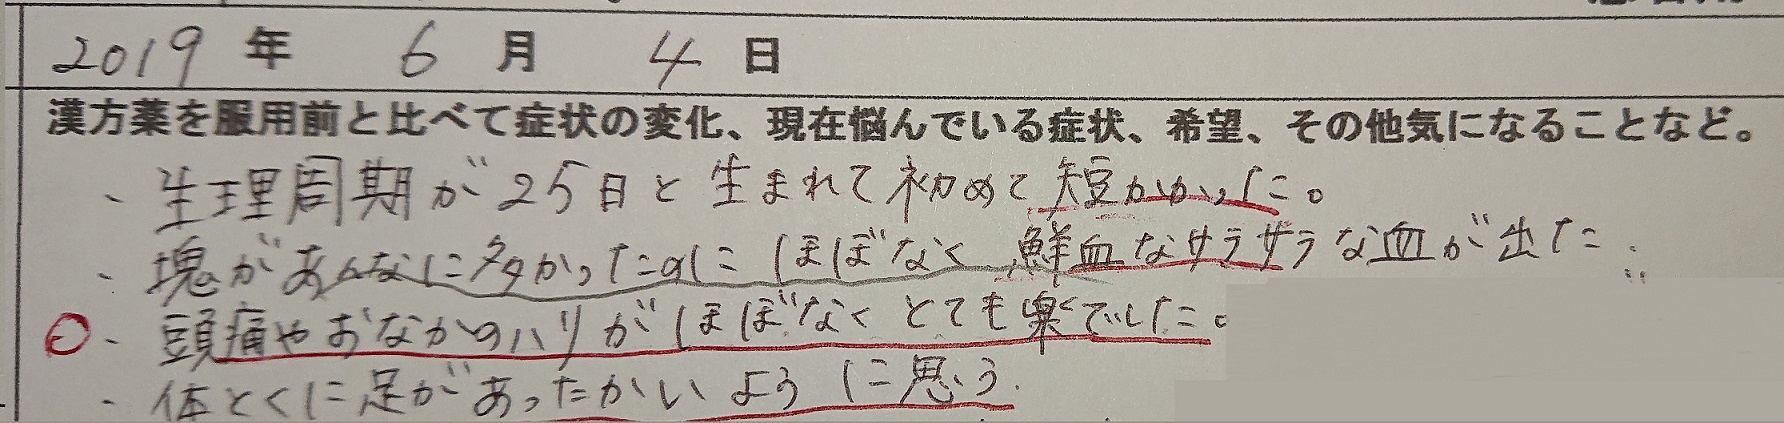 2019 年 6 月 4 日
漢方薬を服用前と比べて症状の変化、現在悩んでいる症状、希望、その他気になることなど。
、生理周期が25日と生まれて初めて短かかった。
、塊があんなに多かったのにほぼなく鮮血なサラサラな血が出た
、頭痛やおなかのハリがほぼなくとても楽でした。
、体とくに足があったかいように思う.